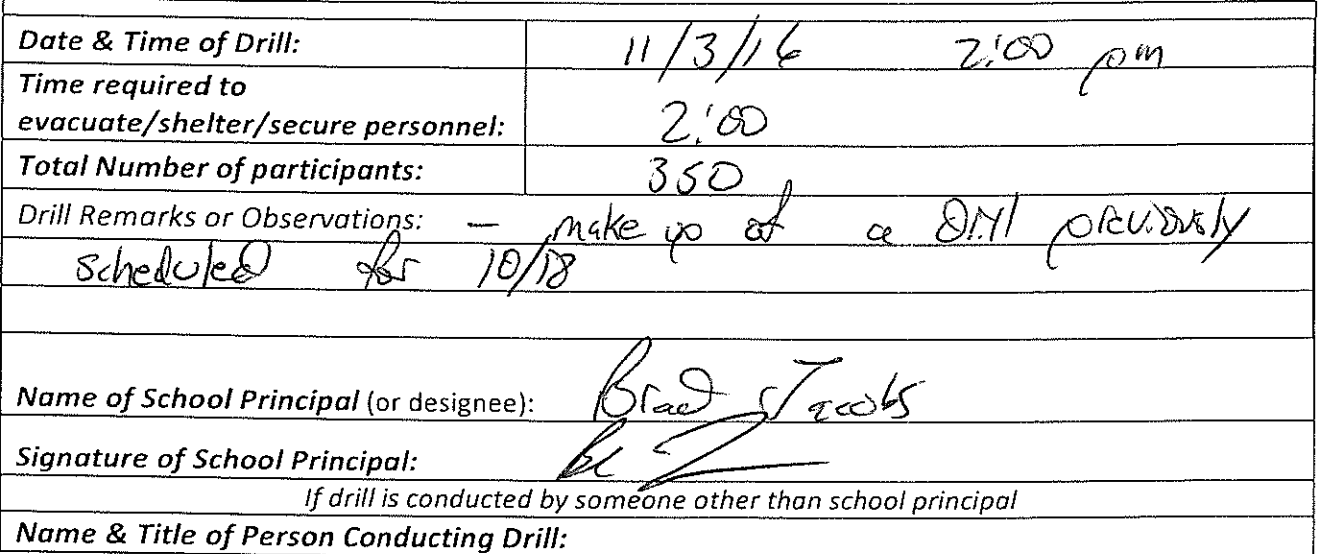 Date & Time of Drill: 11/3/16 2:00 pm
Time required to
evacuate/shelter/secure personnel: 2:00
Total Number of participants: 350
Drill Remarks or Observations: — make up of a Drill previously
scheduled for 10/18
Name of School Principal (or designee): Brad Jacobs
Signature of School Principal:
If drill is conducted by someone other than school principal
Name & Title of Person Conducting Drill: